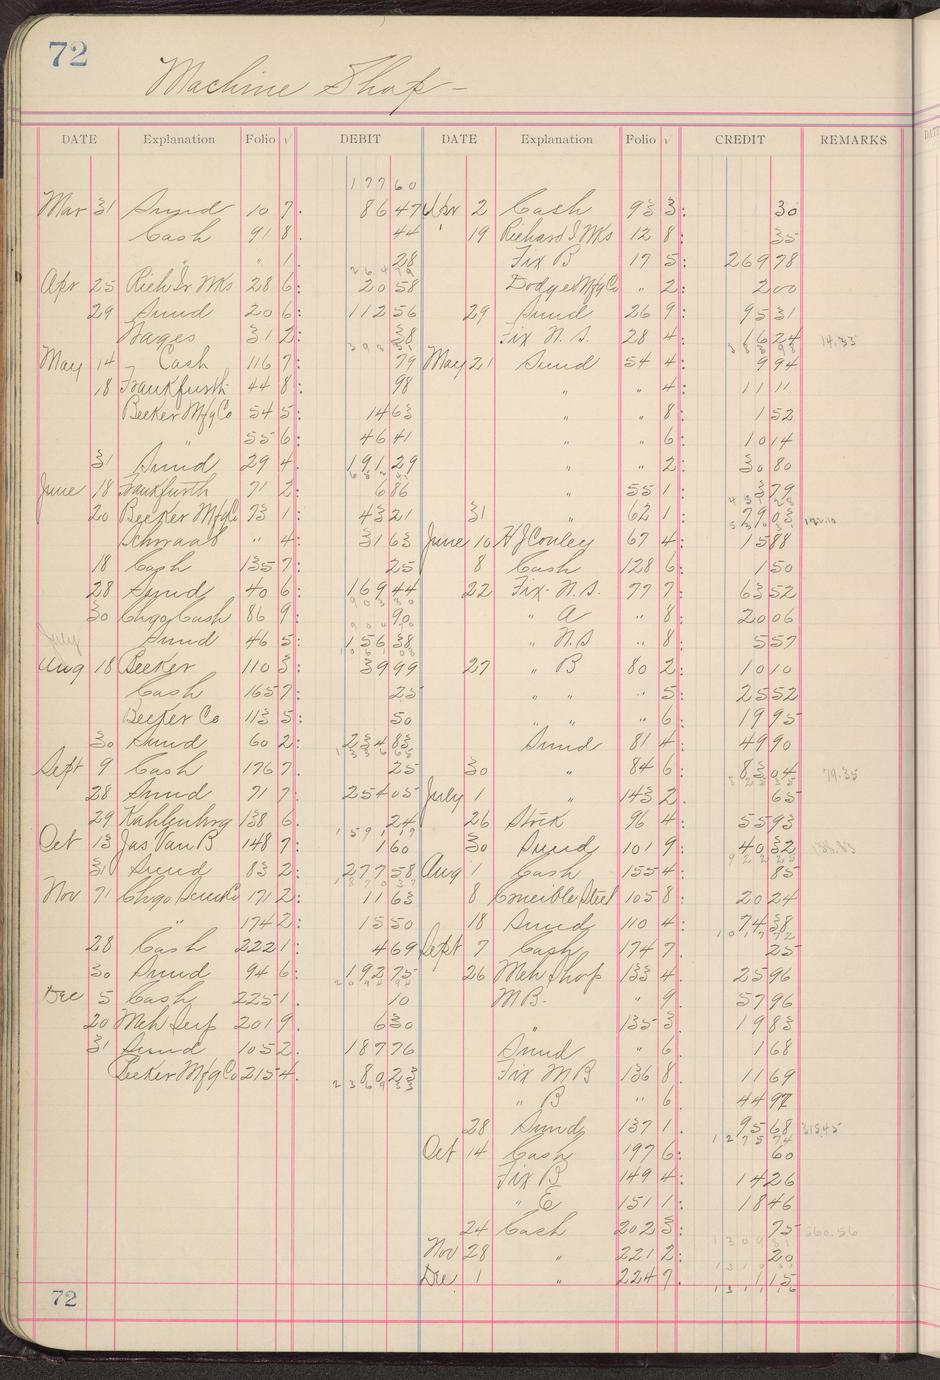 72
Machine Shop -
DATE Explanation Folio √ DEBIT DATE Explanation Folio √ CREDIT REMARKS
177 60
Mar 31 Sund 10 7. 86 47 Apr 2 Cash 93 3: 30
Cash 91 8. 44 19 Richard I Wks 12 8: 35
" " 1. 28 Fix B 17 5: 269 78
264 79
Apr 25 Rich Ir Wks 28 6: 20 58 Dodger Mfg Co " 2: 2 00
29 Sund 20 6: 112 56 29 Sund 26 9: 95 31
Wages 31 2: 38 Fix N.S. 28 4: 16 24 14.33
May 14 Cash 116 7: 79 May 21 Sund 54 4: 9 94
18 Frankfurth 44 8: 98 " " 4: 11 11
Becker Mfg Co 54 5: 14 63 " " 8: 1 52
" 55 6: 46 41 " " 6: 10 14
31 Sund 29 4. 191 29 " " 2: 30 80
June 18 Frankfurth 71 2: 6 86 " 55 1: 3 79
20 Becker Mfg Co 73 1: 43 21 31 " 62 1: 79 03
Schwaab " 4: 31 63 June 10 H J Conley 67 4: 15 88
18 Cash 135 7: 25 8 Cash 128 6: 1 50
28 Sund 40 6: 169 44 22 Fix- N.S. 77 7: 63 52
903 80
30 Chgo Cash 86 9: 90 " A " 8: 20 06
904 70
July Sund 46 5: 156 38 " N.S " 8: 5 57
1061 08
Aug 18 Becker 110 3: 39 99 27 " B 80 2: 10 10
Cash 165 7: 25 " " " 5: 25 52
Becker Co 113 5: 50 " " " 6: 19 95
30 Sund 60 2: 234 83 Sund 81 4: 49 90
1336 65
Sept 9 Cash 176 7. 25 30 " 84 6: 83 04 79.35
28 Sund 71 7: 254 05 July 1 " 143 2: 65
29 Kahlenberg 138 6. 24 26 Stock 96 4: 55 93
1591 19
Oct 13 Jas Van B 148 7: 1 60 30 Sund 101 9: 40 32
922 25
31 Sund 83 2: 277 58 Aug 1 Cash 155 4: 85
1870 37
Nov 71 171 2: 11 63 8 Crucible Steel 105 8: 20 24
" 174 2: 15 50 18 Sund 110 4: 74 38
1017 72
28 Cash 222 1: 4 69 Sept 7 Cash 174 7. 25
30 Sund 94 6: 192 75 26 Meh Shop 133 4: 25 96
2094 94
Dec 5 Cash 225 1. 10 M B. " 9. 57 96
20 Meh Serf 201 9. 6 30 " 135 3: 19 83
31 Sund 105 2. 187 76 Sund " 6. 1 68
Becker Mfg Co 215 4. 80 23 Fix M B 136 8: 11 69
2369 33
" B " 6. 44 97
28 Sund 137 1. 95 68 315.45
1275 74
Oct 14 Cash 197 6: 60
Fix B 149 4: 14 26
" E 151 1: 18 46
24 Cash 202 3: 75 560.56
Nov 28 " 221 2: 20
1310 01
Dec 1 " 224 7. 1 15
1311 16
72